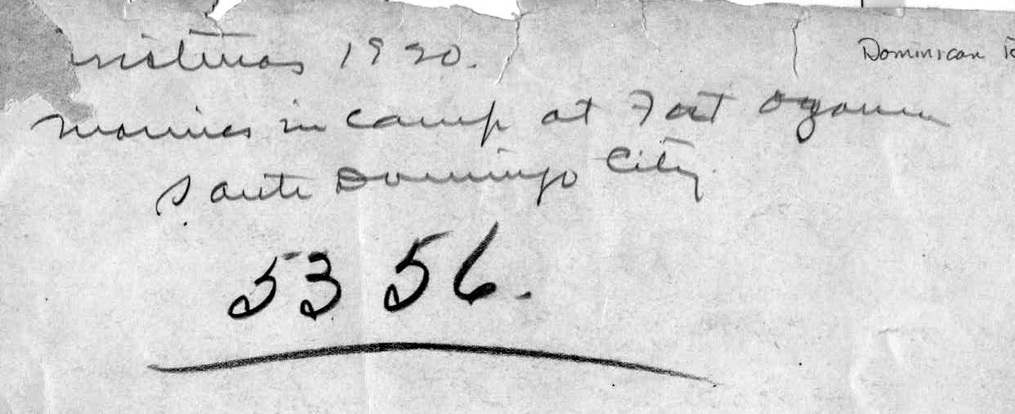 ristmas 1920. Dominican
Marines in camp at Fort Ozama
Santo Domingo City.
5356.